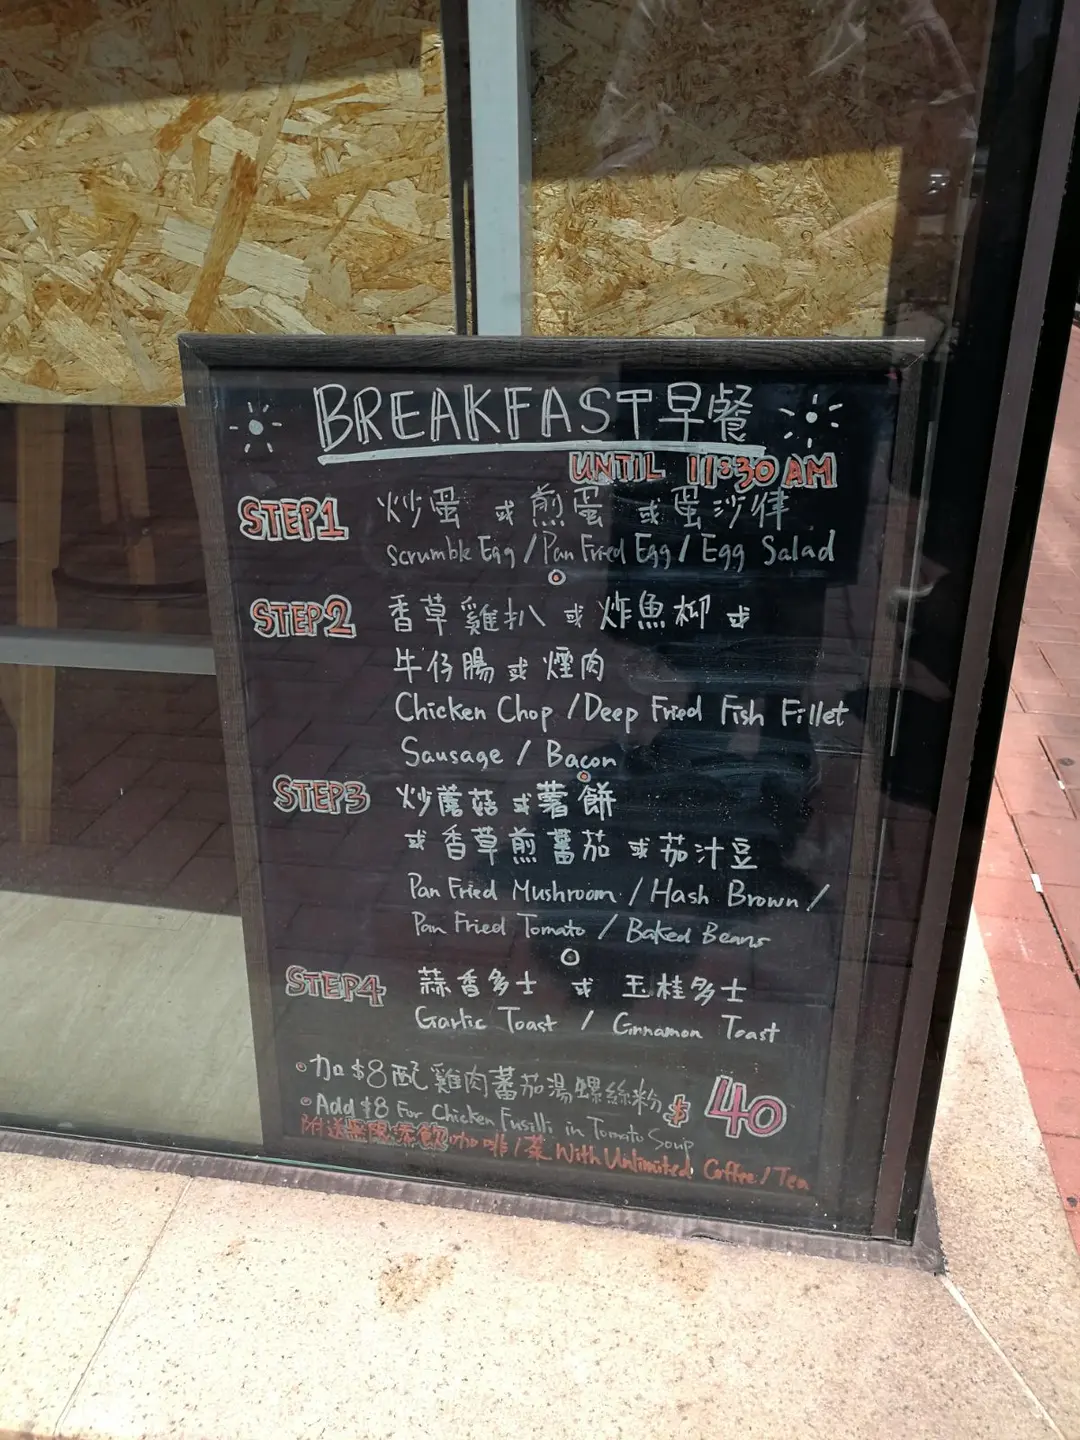 BREAKFAST早餐
UNTIL 11:30 AM
STEP1 炒蛋 或 煎蛋 或 蛋沙律
Scrumble Egg / Pan Fried Egg / Egg Salad
STEP2 香草雞扒 或 炸魚柳 或
牛仔腸 或 煙肉
Chicken Chop / Deep Fried Fish Fillet
Sausage / Bacon
STEP3 炒蘑菇 或 薯餅
或 香草煎蕃茄 或 茄汁豆
Pan Fried Mushroom / Hash Brown /
Pan Fried Tomato / Baked Beans
STEP4 蒜香多士 或 玉桂多士
Garlic Toast / Cinnamon Toast
加 $8 配 雞肉蕃茄湯螺絲粉 $40
Add $8 For Chicken Fusilli in Tomato Soup
附送無限添飲咖啡/茶 With Unlimited Coffee / Tea